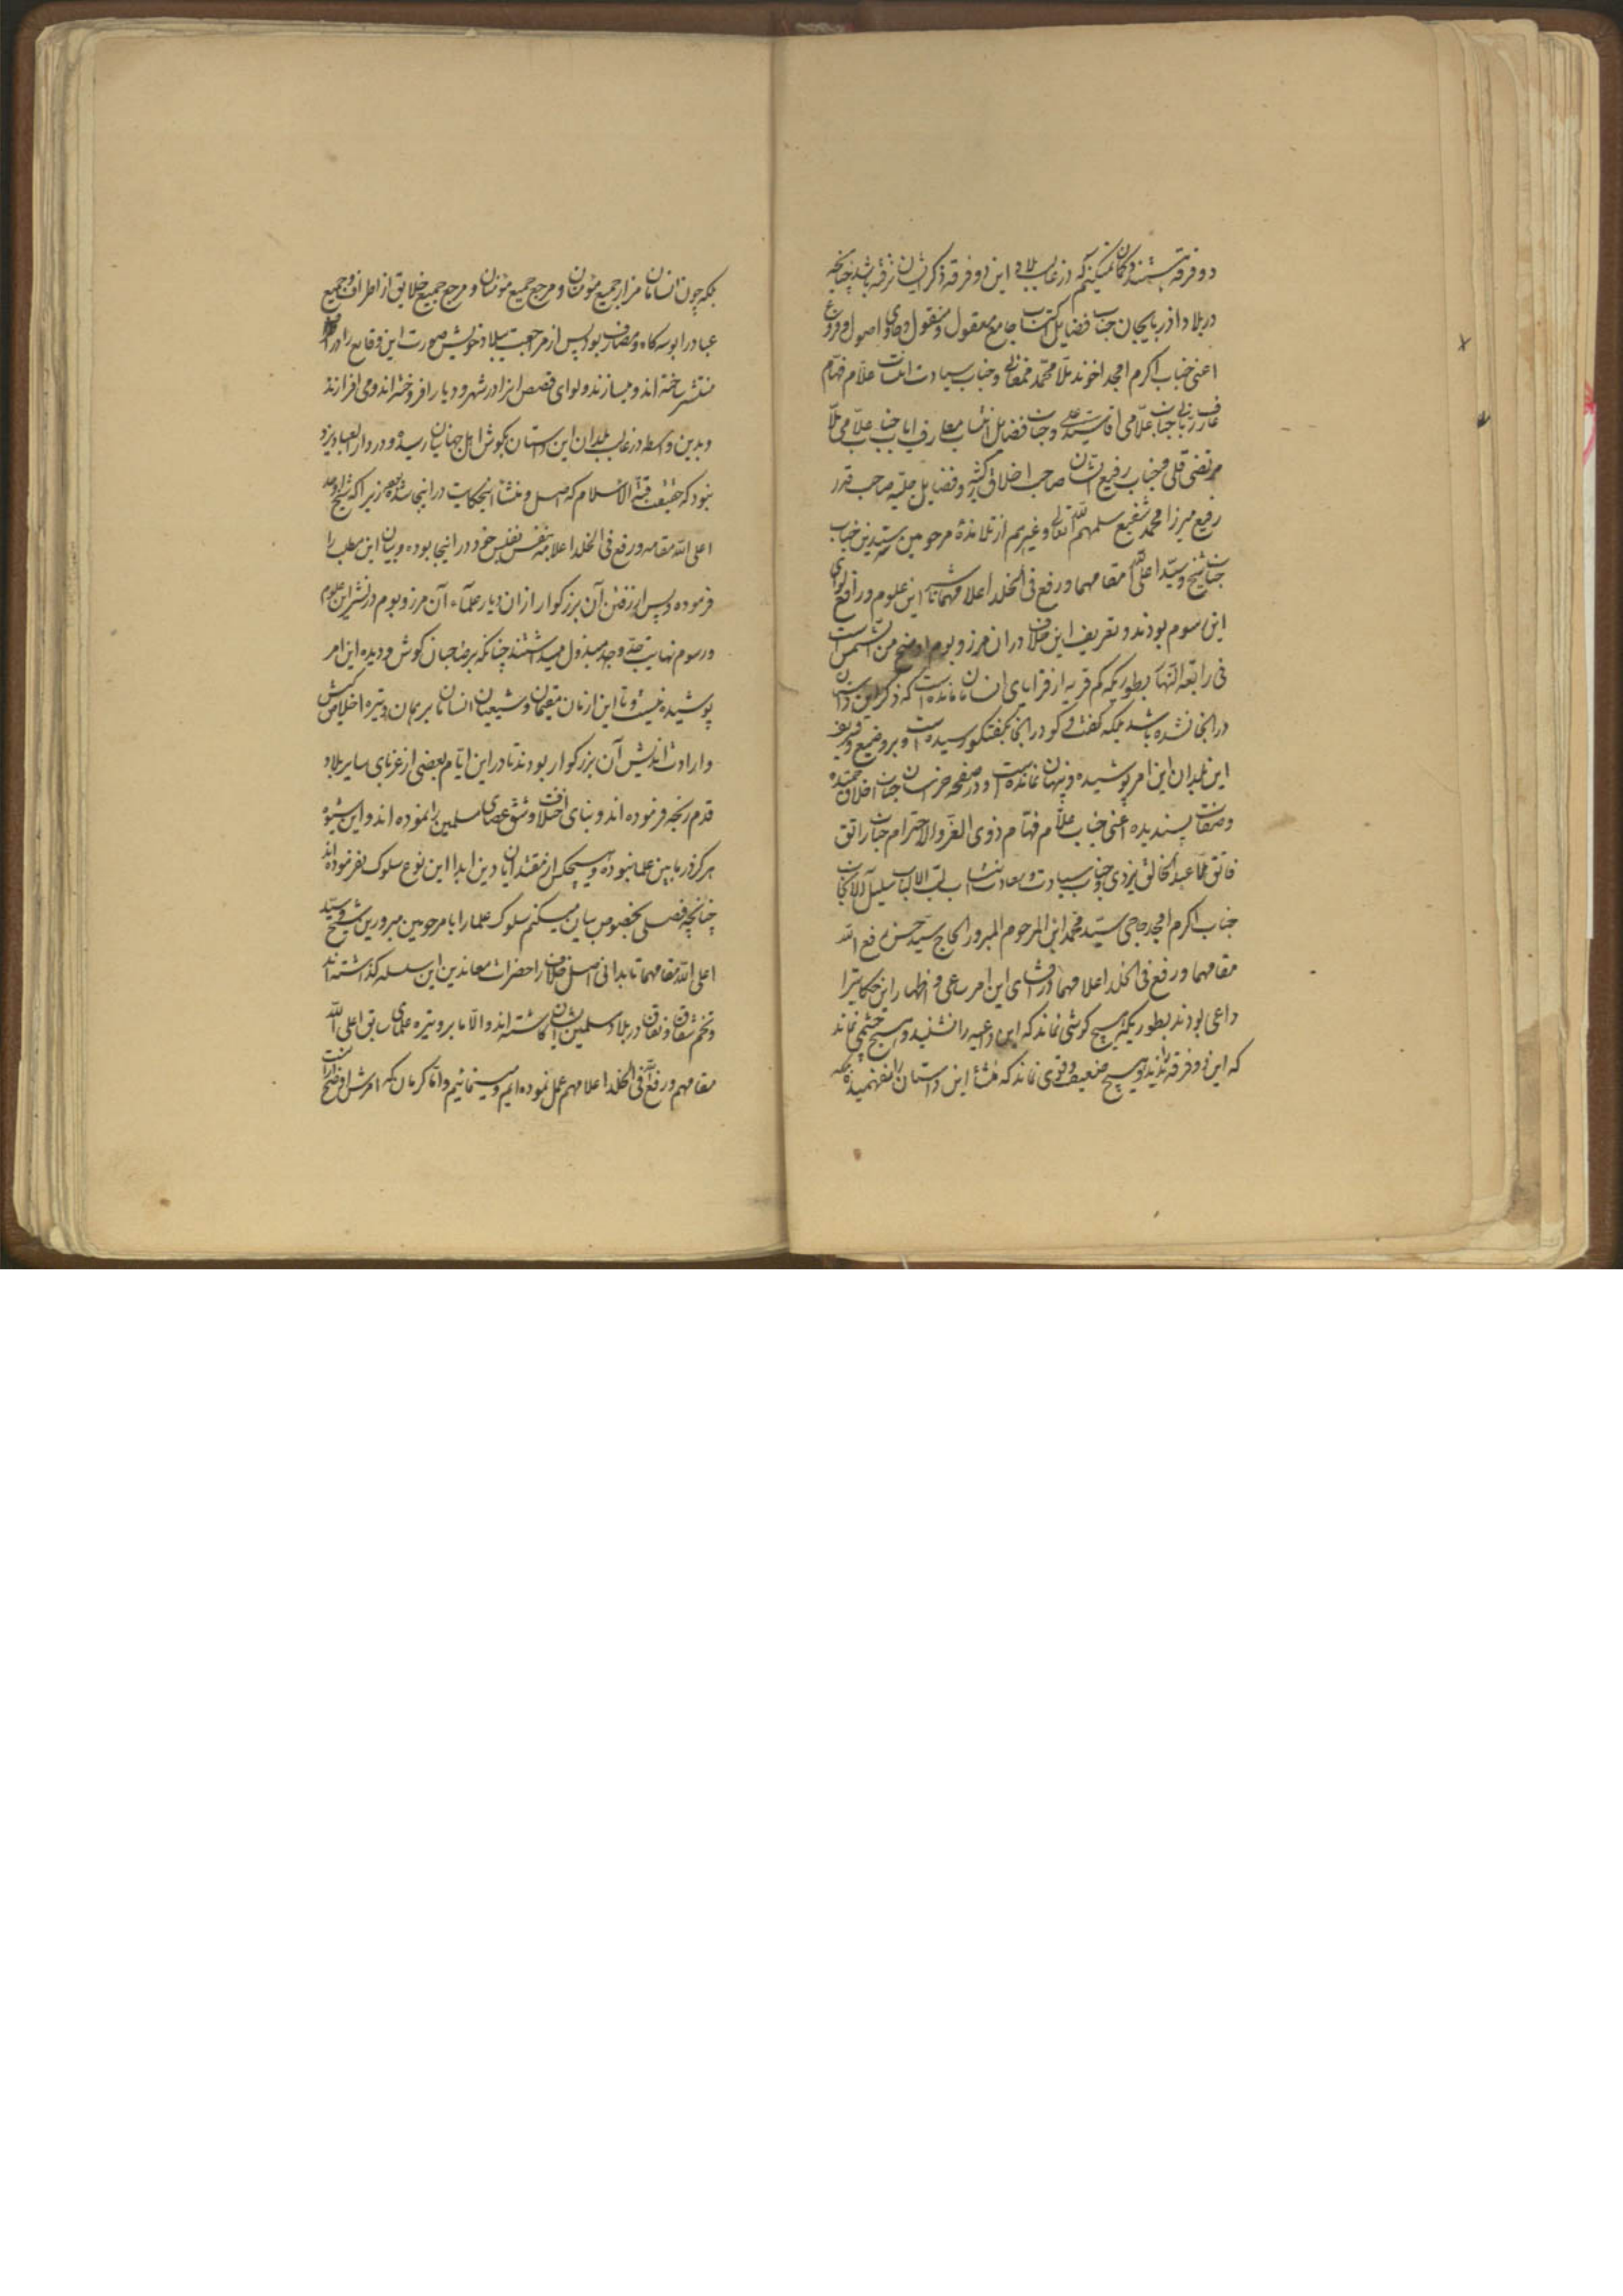 دو فرقه هستند و گمان نمیکنم که در غالب بلاد این دو فرقه ذکر ایشان نرفته باشد چنانچه
در بلاد اذربایجان جناب فضایل اکتساب جامع معقول و منقول و حاوی اصول و فروع
اعنی جناب اکرم امجد اخوند ملا محمد ممقانی و جناب سیادت انتساب علام فهام
عارف ربانی جناب علامی اقا سید علی و جناب فضایل انتساب معارف اياب جناب علامی ملا
مرتضی قلی و جناب رفیع الشان صاحب اخلاق و فضایل جلیه صاحب قدر
رفیع میرزا محمد شفیع سلمهم الله تعالی و غیرهم از تلامذهٔ مرحومین سیدین جناب
جناب شیخ و سید اعلی الله مقامهما و رفع فی الخلد اعلامهما ناشر این علوم و رافع لوای
این رسوم بودند و تعریف این خلاف در ان مرز و بوم اوضح من الشمس است
فی رابعة النهار بطوریکه کم قریه از قرایای انسامان مانده است که ذکر این داستان
در انجا نشده باشد بلکه گفت و گو در انجا بگفتگو رسیده است و بر وضیع و شریف
این بلدان این امر پوشیده و پنهان نمانده است و در صفحه خراسان جناب اخلاق حمیده
و صفات پسندیده اعنی جناب علام فهام ذوی العز والاحترام جناب راتق
فاتق ملا عبد الخالق یزدی و جناب سیادت و سعادت انتساب لب الالباب سلیل الانجاب
جناب اکرم امجد حاجی سید محمد ابن المرحوم المبرور الحاج سید حسن رفع الله
مقامهما و رفع فی الخلد اعلامهما در افشای این امر ساعی و اظهار این حکایت را
داعی بودند بطوریکه هیچ گوشی نماند که این داعیه را نشنید و هیچ چشمی نماند
که این دو فرقه را ندید و هیچ ضعیف و قوی نماند که منشأ این داستان را نفهمیده
بلکه چون انسامان مزار جمیع مؤمنان و مرجع جمیع خلایق از اطراف و جمیع
عباد را بوسه گاه و مصاف بود پس از مراجعت ببلاد خویش صورت این وقایع را در
منتشر ساخته اند و میسازند و لوای قصص انرا در شهر و دیار افروخته اند و می افرازند
و بدین واسطه در غالب بلدان این داستان بگوش اهل جهانیان رسیده و در دار العباد یزد
نبود که حقیقت قبة الاسلام که اصل و منشأ انحکایت در انجا شده زیرا که شیخ
اعلی الله مقامه و رفع فی الخلد اعلامه بنفس نفیس خود در انجا بوده و بیان این مطلب را
فرموده و پس از رفتن آن بزرگوار از ان دیار علمآء آن مرز و بوم در نشر این علوم
و رسوم نهایت جد و جهد مبذول میداشتند چنانکه بر صاحبان گوش و دیده این امر
پوشیده نیست و تا این زمان مقیمان و شیعیان انسامان بر همان وتیره اخلاص کیش
و ارادت اندیش آن بزرگوار بودند تا در این ایام بعضی از غربای سایر بلاد
قدم رنجه فرموده اند و بنای اختلاف و شق عصای مسلمین را نموده اند و این شیوه
هرگز در ما بین علما نبوده و هیچکس از مقتدایان دین ابدا این نوع سلوک نفرموده اند
چنانچه فصلی بخصوص بیان میکنم سلوک علما را با مرحومین مبرورین شیخ و سید
اعلی الله مقامهما تا بدانی اصل خلاف را حضرات معاندین این سلسله گذاشته اند
و تخم شقاق و نفاق در بلاد مسلمین ایشان کاشته اند و الا ما بر وتیره علمای سابق اعلی الله
مقامهم و رفع فی الخلد اعلامهم عمل نموده ایم و مینمائیم و اما کرمان که امرش اوضح از انست